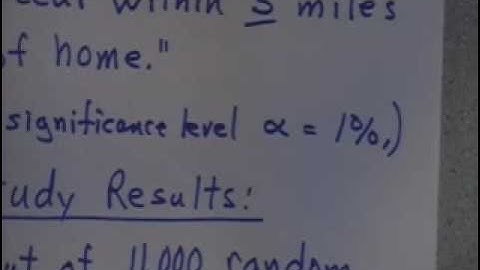 within 5 miles
of home."
significance level α = 1%,)
Results:
of 11,000 random